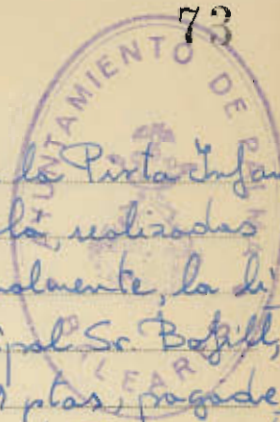 73
AYUNTAMIENTO DE PALMA
la Pista Infan
la, realizadas
nalmente, la li
ipal Sr. Bofill,
ptas, pagade
BALEARES